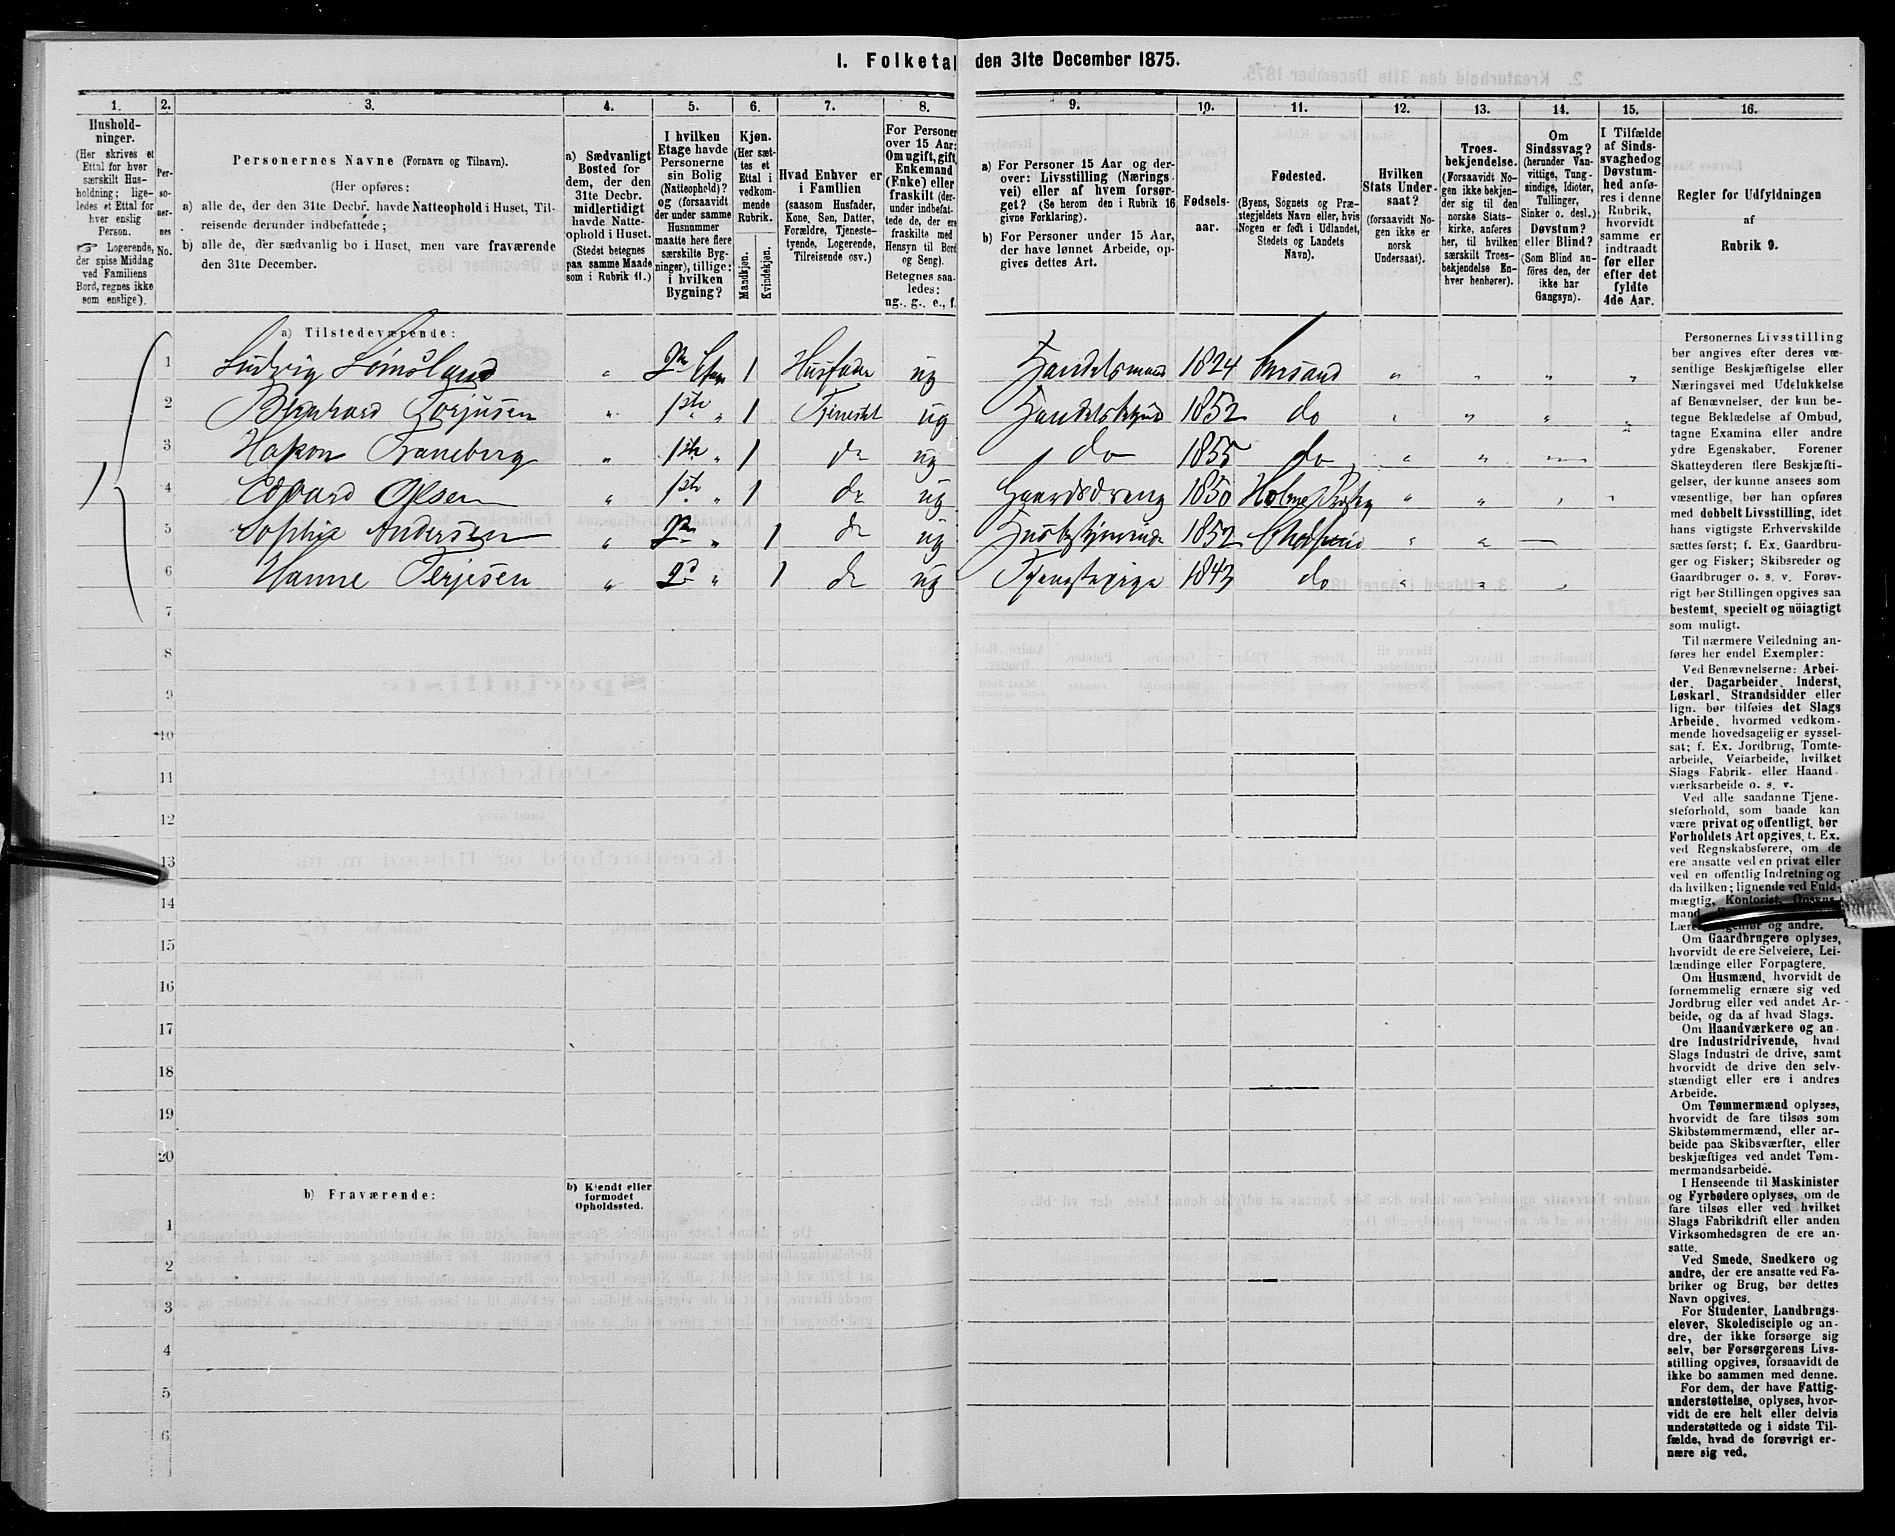 I. Folketal den 31te December 1875.
1. 2. 3. 4. 5. 6. 7. 8. 9. 10. 11. 12. 13. 14. 15. 16.
Hushold-
ninger.
(Her skrives et
Ettal for hver
særskilt Hus-
holdning; lige-
ledes et Ettal for
hver enslig
Person.
☞ Logerende,
der spise Middag
ved Familiens
Bord, regnes ikke
som enslige).
Per-
so-
ner-
nes
No.
Personernes Navne (Fornavn og Tilnavn).
(Her opføres:
a) alle de, der den 31te Decbr. havde Natteophold i Huset, Til-
reisende derunder indbefattede;
b) alle de, der sædvanlig bo i Huset, men vare fraværende
den 31te December.
a) Sædvanligt
Bosted for
dem, der den
31te Decbr.
midlertidigt
havde Natte-
ophold i Huset.
(Stedet betegnes
paa samme Maade
som i Rubrik 11.)
I hvilken
Etage havde
Personerne
sin Bolig
(Natteophold)?
og (forsaavidt
der under samme
Husnummer
maatte here flere
særskilte Byg-
ninger), tillige:
i hvilken
Bygning?
Kjøn.
(Her sæt-
tes et
Ettal i
vedkom-
mende
Rubrik.
Mandkjøn.
Kvindekjøn.
Hvad Enhver er
i Familien
(saasom Husfader,
Kone, Søn, Datter,
Forældre, Tjeneste-
tyende, Logerende,
Tilreisende osv.)
For Personer
over 15 Aar:
Om ugift, gift,
Enkemand
(Enke) eller
fraskilt (der-
under indbefat-
tede de, der ere
fraskilte med
Hensyn til Bord
og Seng).
Betegnes saa-
ledes:
ug., g., e., f.
a) For Personer 15 Aar og der-
over: Livsstilling (Nærings-
vei) eller af hvem forsør-
get? (Se herom den i Rubrik 16
givne Forklaring).
b) For Personer under 15 Aar,
der have lønnet Arbeide, op-
gives dettes Art.
Fødsels-
aar.
Fødested.
(Byens, Sognets og Præ-
stegjeldets Navn eller, hvis
Nogen er født i Udlandet,
Stedets og Landets
Navn).
Hvilken
Stats Under-
saat?
(forsaavidt No-
gen ikke er
norsk
Undersaat).
Troes-
bekjendelse.
(Forsaavidt No-
gen ikke bekjen-
der sig til den
norske Stats-
kirke, anføres
her, til hvilken
særskilt Troes-
bekjendelse En-
hver henhører).
Om
Sindssvag?
(herunder Van-
vittige, Tung-
sindige, Idioter,
Tullinger,
Sinker o. desl.)
Døvstum?
eller Blind?
(Som Blind an-
føres den, der
ikke har
Gangsyn).
I Tilfælde
af Sinds-
svaghedog
Døvstum-
hed anfø-
res i denne
Rubrik,
hvorvidt
samme er
indtraadt
før eller
efter det
fyldte
4de Aar.
Regler for Udfyldningen
af
Rubrik 9.
a) Tilstedeværende:
1 Ludvig Lømsland " 2den Etage 1 Husfader ug Handelsmand 1824 " " " "
2 Bernhard Torjusen " 1ste " 1 Tjenestet ug 1852 do " " " "
3 Hakon Traneberg " 1ste " 1 do ug do 1855 do " " "
4 Edvard Olsen " 1ste " 1 do ug Gaardsdreng 1850 " " " "
1
5 Sophie Andersen " 2den " 1 do ug Husbestyrerinde 1852 " "
6 Hanne Terjesen " 2d " 1 do ug Tjenestepige 1843 do " " "
7
8
9
10
11
12
13
14
15
16
17
18
19
20
b) Fraværende:
b) Kjendt eller
formodet
Opholdssted.
1
2
3
4
5
6
Personernes Livsstilling
bør angives efter deres væ-
sentlige Beskjæftigelse eller
Næringsvei med Udelukkelse
af Benævnelser, der kun be-
tegne Beklædelse af Ombud,
tagne Examina eller andre
ydre Egenskaber. Forener
Skatteyderen flere Beskjæfti-
gelser, der kunne ansees som
væsentlige, bør han opføres
med dobbelt Livsstilling, idet
hans vigtigste Erhvervskilde
sættes først; f. Ex. Gaardbru-
ger og Fisker; Skibsreder og
Gaardbruger o. s. v. Forøv-
rigt bør Stillingen opgives saa
bestemt, specielt og nöiagtigt
som muligt.
Til nærmere Veiledning an-
føres her endel Exempler:
Ved Benævnelserne: Arbei-
der, Dagarbeider, Inderst,
Løskarl, Strandsidder eller
lign. bør tilføies det Slags
Arbeide, hvormed vedkom-
mende hovedsagelig er syssel-
sat; f. Ex. Jordbrug, Tomte-
arbeide, Veiarbeide, hvilket
Slags Fabrik- eller Haand-
værksarbeide o. s. v.
Ved alle saadanne Tjene-
steforhold, som baade kan
være privat og offentligt, bør
Forholdets Art opgives, t. Ex.
ved Regnskabsførere, om de
ere ansatte ved en privat eller
ved en offentlig Indretning og
da hvilken; lignende ved Fuld-
mægtig, Kontorist, Opsyns-
mand,
og andre.
Om Gaardbrugere oplyses,
hvorvidt de ere Selveiere, Lei-
lændinge eller Forpagtere.
Om Husmænd, hvorvidt de
fornemmelig ernære sig ved
Jordbrug eller ved andet Ar-
beide, og da af hvad Slags.
Om Haandværkere og an-
dre Industridrivende, hvad
Slags Industri de drive, samt
hvorvidt de drive den selv-
stændigt eller ere i andres
Arbeide.
Om Tømmermænd oplyses,
hvorvidt de fare tilsøs som
Skibstømmermænd, eller ar-
beide paa Skibsværfter, eller
beskjæftiges ved andet Tøm-
mermandsarbeide.
I Henseende til Maskinister
og Fyrbødere oplyses, om de
fare tilsøs eller ved hvilket
Slags Fabrikdrift eller anden
Virksomhedsgren de ere an-
satte.
Ved Smede, Snedkere og
andre, der ere ansatte ved Fa-
briker og Brug, bør dettes
Navn opgives.
For Studenter, Landbrugs-
elever, Skoledisciple og an-
dre, der ikke forsørge sig
selv, bør Forsørgerens Livs-
stilling opgives, forsaavidt de
ikke bo sammen med denne.
For dem, der have Fattig-
understøttelse, oplyses, hvor-
vidt de ere helt eller delvis
understøttede og i sidste Til-
fælde, hvad de forøvrigt er-
nære sig ved.